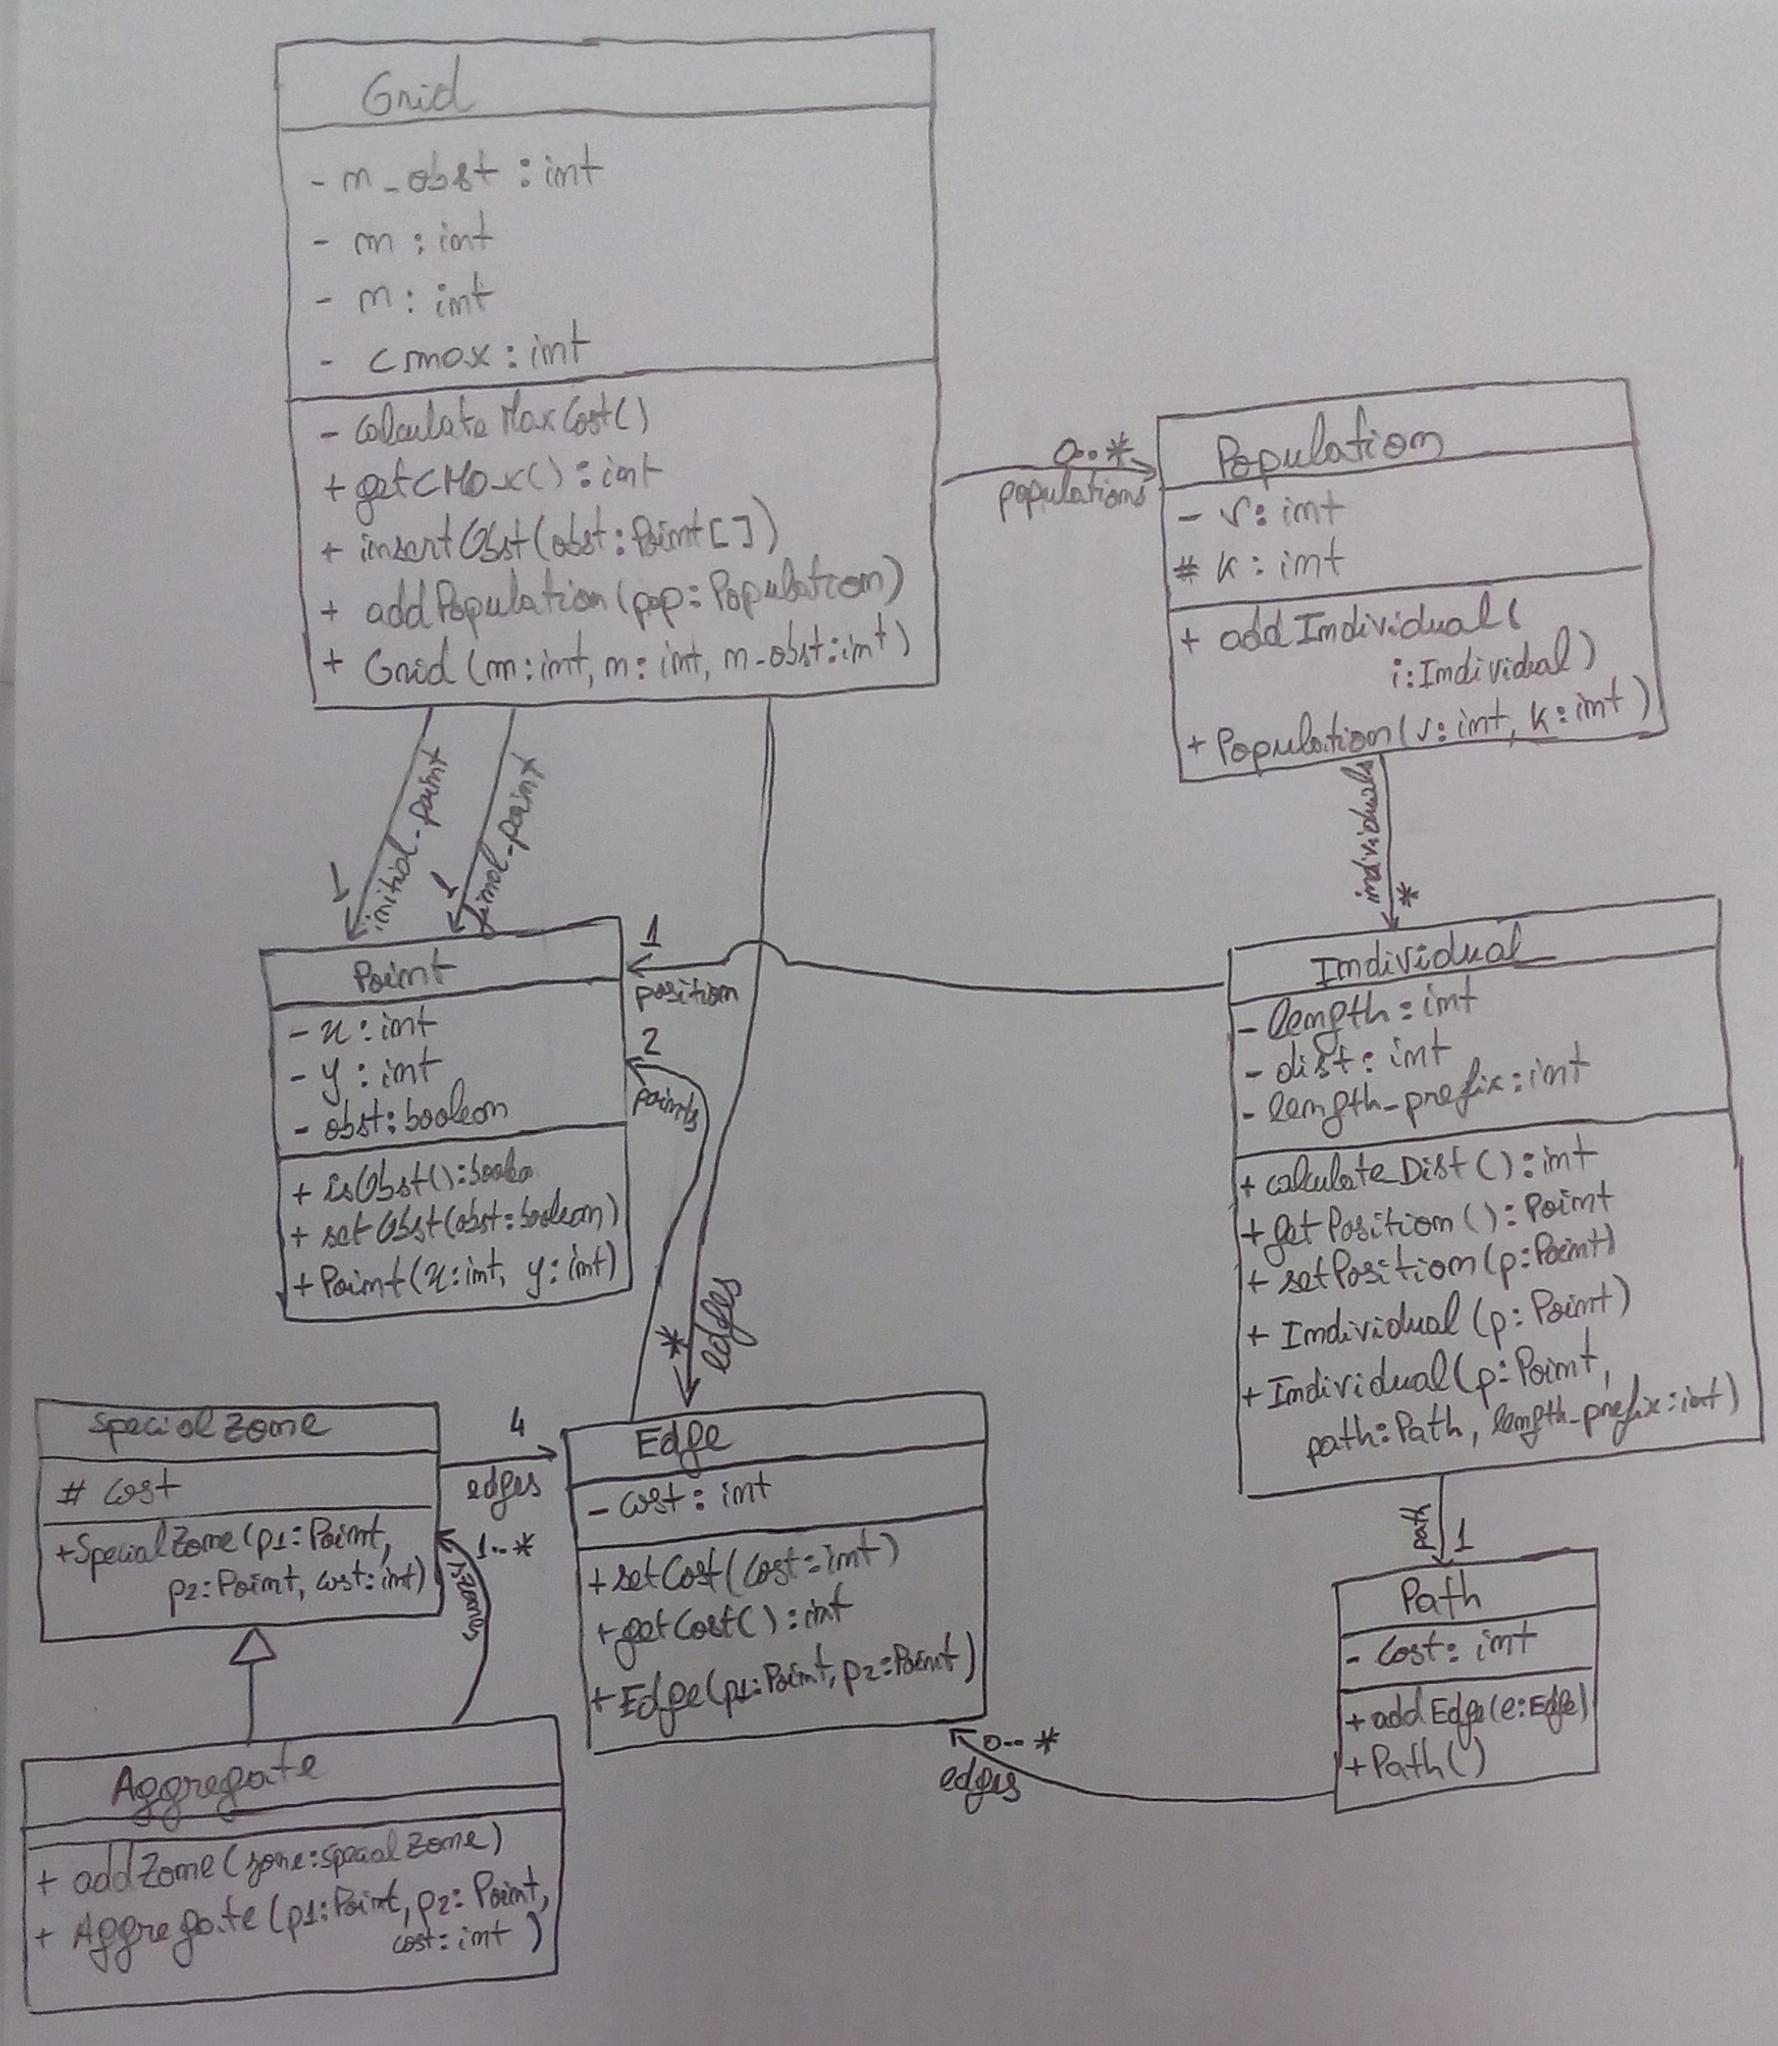 Grid
- n_obst : int
- n : int
- m : int
- cmax : int
- calculateMaxCost()
+ getCMax() : int
+ insertObst(obst : Point[])
+ addPopulation(pop : Population)
+ Grid(n : int, m : int, n_obst : int)
0..*
populations
Population
- v : int
# k : int
+ addIndividual(
i : Individual)
+ Population(v : int, k : int)
1
initial_point
1
final_point
individuals
*
Point
- x : int
- y : int
- obst : boolean
+ isObst() : boolea
+ setObst(obst : boolean)
+ Point(x : int, y : int)
1
position
2
points
*
edges
Individual
- length : int
- dist : int
- length_prefix : int
+ calculateDist() : int
+ getPosition() : Point
+ setPosition(p : Point)
+ Individual(p : Point)
+ Individual(p : Point,
path : Path, length_prefix : int)
SpecialZone
# cost
+ SpecialZone(p1 : Point,
p2 : Point, cost : int)
4
edges
1..*
Edge
- cost : int
+ setCost(cost : int)
+ getCost() : int
+ Edge(p1 : Point, p2 : Point)
path
1
Path
- cost : int
+ addEdge(e : Edge)
+ Path()
0..*
edges
Aggregate
+ addZone(zone : specialZone)
+ Aggregate(p1 : Point, p2 : Point,
cost : int)